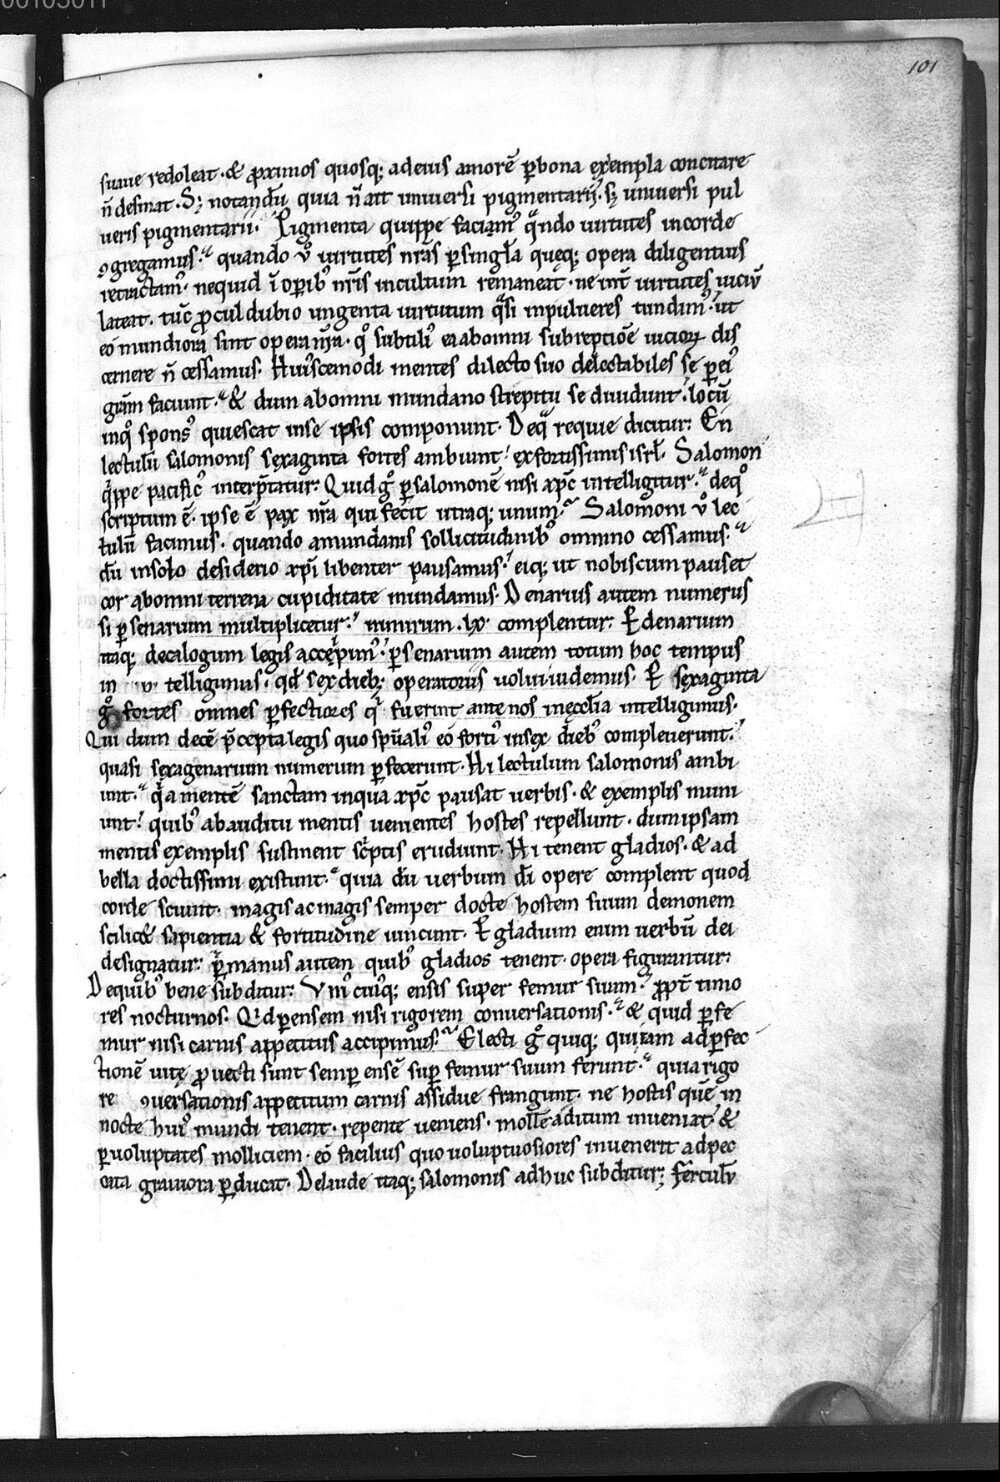 101
suaue redoleat · & p̱ximos quosq; ad eius amorē ꝑ bona exempla concitare
n̄ desinat . S; notandū quia n̄ ait uniuersi pigmentarij · s; uniuersi pul
ueris pigmentarii · Pigmenta quippe facimꝰ qͣndo uirtutes in corde
ꝯgregamus · quando ů uirtutes nr̄as ꝑ singl̄a queq; opera diligentius
retractamꝰ · nequid ī oꝑibꝰ nr̄is incultum remaneat · ne int̄ uirtutes uiciū
lateat · tūc p̱culdubio ungenta uirtutum qͣsi in pulueres tundimꝰ · ut
eo mundiora sint opera nr̄a · qͦ subtiliꝰ ea ab omni subreptiōe uicioꝝ dis
cernere n̄ cessamus · Huiꝰscemodi mentes dilecto suo delectabiles se ꝑ eiꝰ
gr̄am faciunt · & dum ab omni mundano strepitu se diuidunt · locū
in qͦ sponsꝰ quiescat in se ipsis componunt · De qͣ requie dicitur · En
lectulū salomonis sexaginta fortes ambiunt · ex fortissimis isrl̄ · Salomon
qͥppe pacificꝰ interp̄tatur · Quid gͦ ꝑ salomonē nisi xp̄c intelligitur · de qͦ
scriptum ē · ipse ē pax nr̄a qui fecit utraq; unum · Salomoni ů lec
tulū facimus · quando a mundanis sollicitudinibꝰ omnino cessamus ·
dū in solo desiderio xp̄i libenter pausamus · eiq; ut nobiscum pauset
cor ab omni terrena cupiditate mundamus · Denarius autem numerus
si ꝑ senarium multiplicetur · nimirum · lx · complentur · Ꝑ denarium
itaq; decalogum legis accepimꝰ · ꝑ senarium autem totum hoc tempus
in telligimus · qd̄ sex dieb; operatoriis uolui uidemus · Ꝑ sexaginta
gͦ fortes omnes ꝑfectiores qͥ fuerunt ante nos in ęccl̄ia intelligimus ·
Qui dum decē p̄cepta legis quo spūaliꝰ eo fortiꝰ in sex diebꝰ compleuerunt ·
quasi sexagenarium numerum ꝑfecerunt · Hi lectulum salomonis ambi
unt · qͥa mentē sanctam in qua xp̄c pausat uerbis · & exemplis muni
unt · quibꝰ ab auditu mentis uenientes hostes repellunt · dum ipsam
mentis exemplis sustinent scͥptis erudiunt · Hi tenent gladios · & ad
bella doctissimi existunt · quia dū uerbum dī opere complent quod
corde sciunt · magis ac magis semper docte hostem suum demonem
scilicet sapientia & fortitudine uincunt · Ꝑ gladium enim uerbū dei
designatur · ꝑ manus autem quibꝰ gladios tenent · opera figurantur ·
De quibꝰ bene subditur · Vniꝰ cuiꝰq; ensis super femur suum · p̱pt̄ timo
res nocturnos · Qͥd ꝑ ensem nisi rigorem conuersationis · & quid ꝑ fe
mur nisi carnis appetitus accipimus · Electi gͦ quiq; qui iam ad ꝑfec
tionē uitę p̱uecti sunt semꝑ ensē suꝑ femur suum ferunt · quia rigo
re ꝯuersationis appetitum carnis assidue frangunt · ne hostis quē in
nocte huiꝰ mundi tenent · repente ueniens · mollē aditum inueniat · &
ꝑ uoluptates molliciem · eo facilius quo uoluptuosiores inuenerit ad pec
cata grauiora ꝑducat · De laude itaq; salomonis adhuc subditur ; ferculū